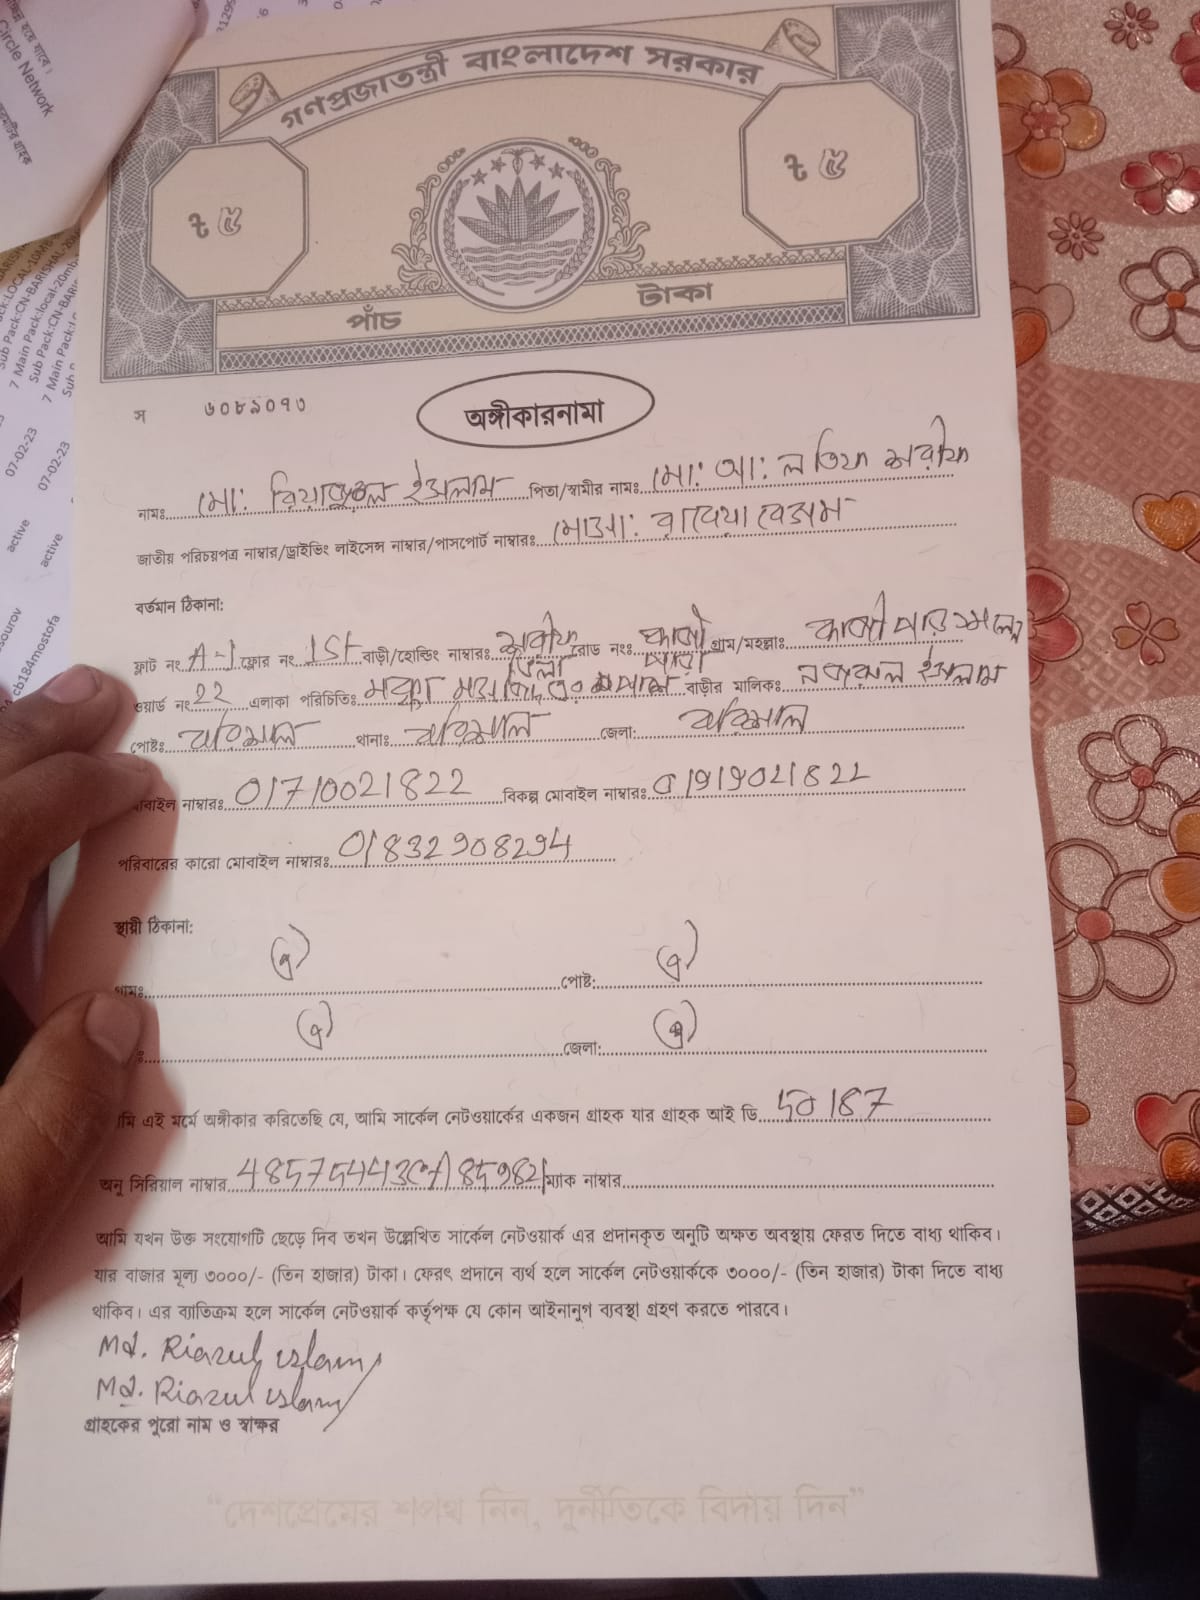 গণপ্রজাতন্ত্রী বাংলাদেশ সরকার
ট ৫
ট ৫
পাঁচ
টাকা
স ৬০৮৯০৭৩
অঙ্গীকারনামা
নামঃ মো: রিয়াজুল ইসলাম পিতা/স্বামীর নামঃ মো: আ: লতিফ শরীফ
জাতীয় পরিচয়পত্র নাম্বার/ড্রাইভিং লাইসেন্স নাম্বার/পাসপোর্ট নাম্বারঃ মোসা: রাবেয়া বেগম
বর্তমান ঠিকানা:
ফ্লাট নং A-1 ফ্লোর নং 1st বাড়ী/হোল্ডিং নাম্বারঃ শরীফ ভিলা রোড নংঃ কাজী পাড়া গ্রাম/মহল্লাঃ কাজী পাড়া
ওয়ার্ড নং 22 এলাকা পরিচিতিঃ মক্কা মসজিদ বাড়ীর মালিকঃ নজরুল ইসলাম
পোষ্টঃ বরিশাল থানাঃ বরিশাল জেলা: বরিশাল
মোবাইল নাম্বারঃ 01710021822 বিকল্প মোবাইল নাম্বারঃ 01919021822
পরিবারের কারো মোবাইল নাম্বারঃ 01832908294
স্থায়ী ঠিকানা:
গ্রামঃ ঐ পোষ্ট: ঐ
ঐ জেলা: ঐ
আমি এই মর্মে অঙ্গীকার করিতেছি যে, আমি সার্কেল নেটওয়ার্কের একজন গ্রাহক যার গ্রাহক আই ডি 50187
অনু সিরিয়াল নাম্বার ম্যাক নাম্বার
আমি যখন উক্ত সংযোগটি ছেড়ে দিব তখন উল্লেখিত সার্কেল নেটওয়ার্ক এর প্রদানকৃত অনুটি অক্ষত অবস্থায় ফেরত দিতে বাধ্য থাকিব।
যার বাজার মূল্য ৩০০০/- (তিন হাজার) টাকা। ফেরৎ প্রদানে ব্যর্থ হলে সার্কেল নেটওয়ার্ককে ৩০০০/- (তিন হাজার) টাকা দিতে বাধ্য
থাকিব। এর ব্যতিক্রম হলে সার্কেল নেটওয়ার্ক কর্তৃপক্ষ যে কোন আইনানুগ ব্যবস্থা গ্রহণ করতে পারবে।
Md. Riazul islam
Md. Riazul islam
গ্রাহকের পুরো নাম ও স্বাক্ষর
“দেশপ্রেমের শপথ নিন, দুর্নীতিকে বিদায় দিন”
Circle Network
07-02-23
07-02-23
active
active
cb184mostofa